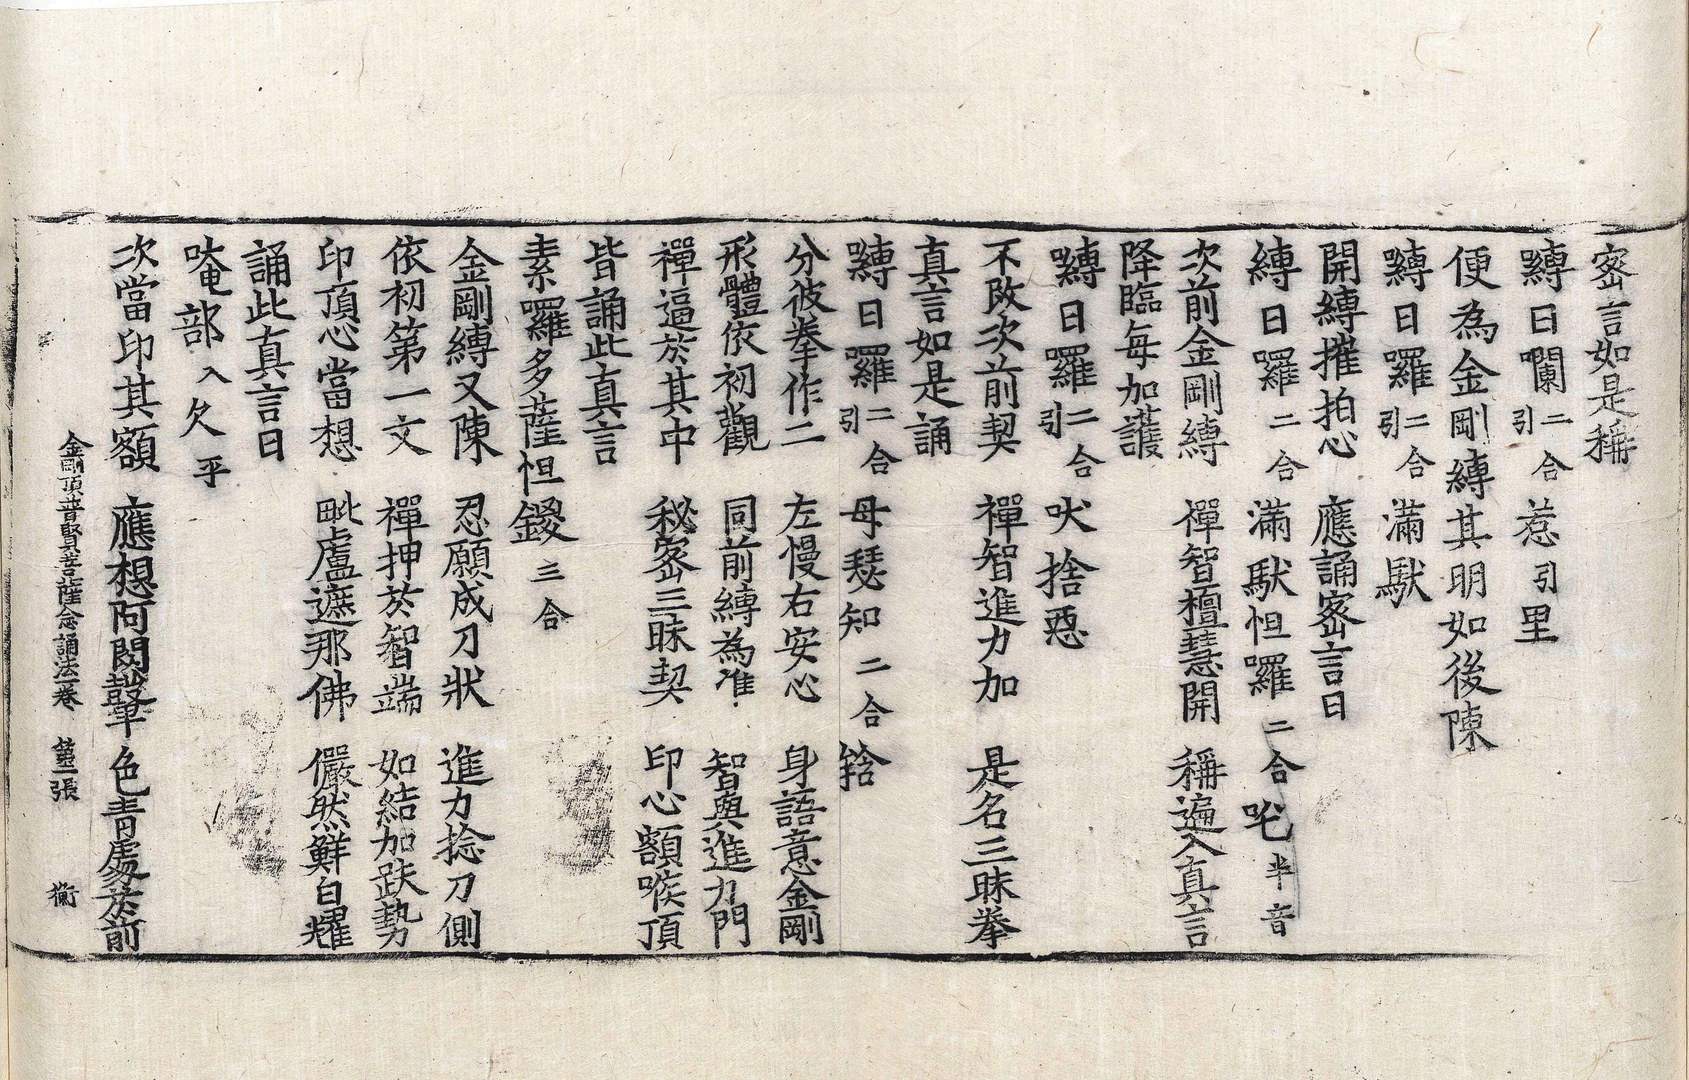 密言如是稱
嚩日囕二合引惹引里
便為金剛縛其明如後陳
嚩日囉二合引滿馱
開縛摧拍心應誦密言曰
嚩日囉二合滿馱怛囉二合吒半音
次前金剛縛禪智檀慧開稱遍入真言
降臨每加護
嚩日囉二合引吠捨惡
不改次前契禪智進力加是名三昧拳
真言如是誦
嚩日囉二合引母瑟知二合鍐
分彼拳作二左慢右安心身語意金剛
形體依初觀同前縛為准智與進力門
禪逼於其中秘密三昧契印心額喉頂
皆誦此真言
素囉多薩怛鑁三合
金剛縛又陳忍願成刀狀進力捻刀側
依初第一文禪押於智端如結加趺勢
印頂心當想毗盧遮那佛儼然鮮白耀
誦此真言曰
唵部入欠平
次當印其額應想阿閦鞞色青處於前
金剛頂普賢菩薩念誦法一卷 第二張 衡